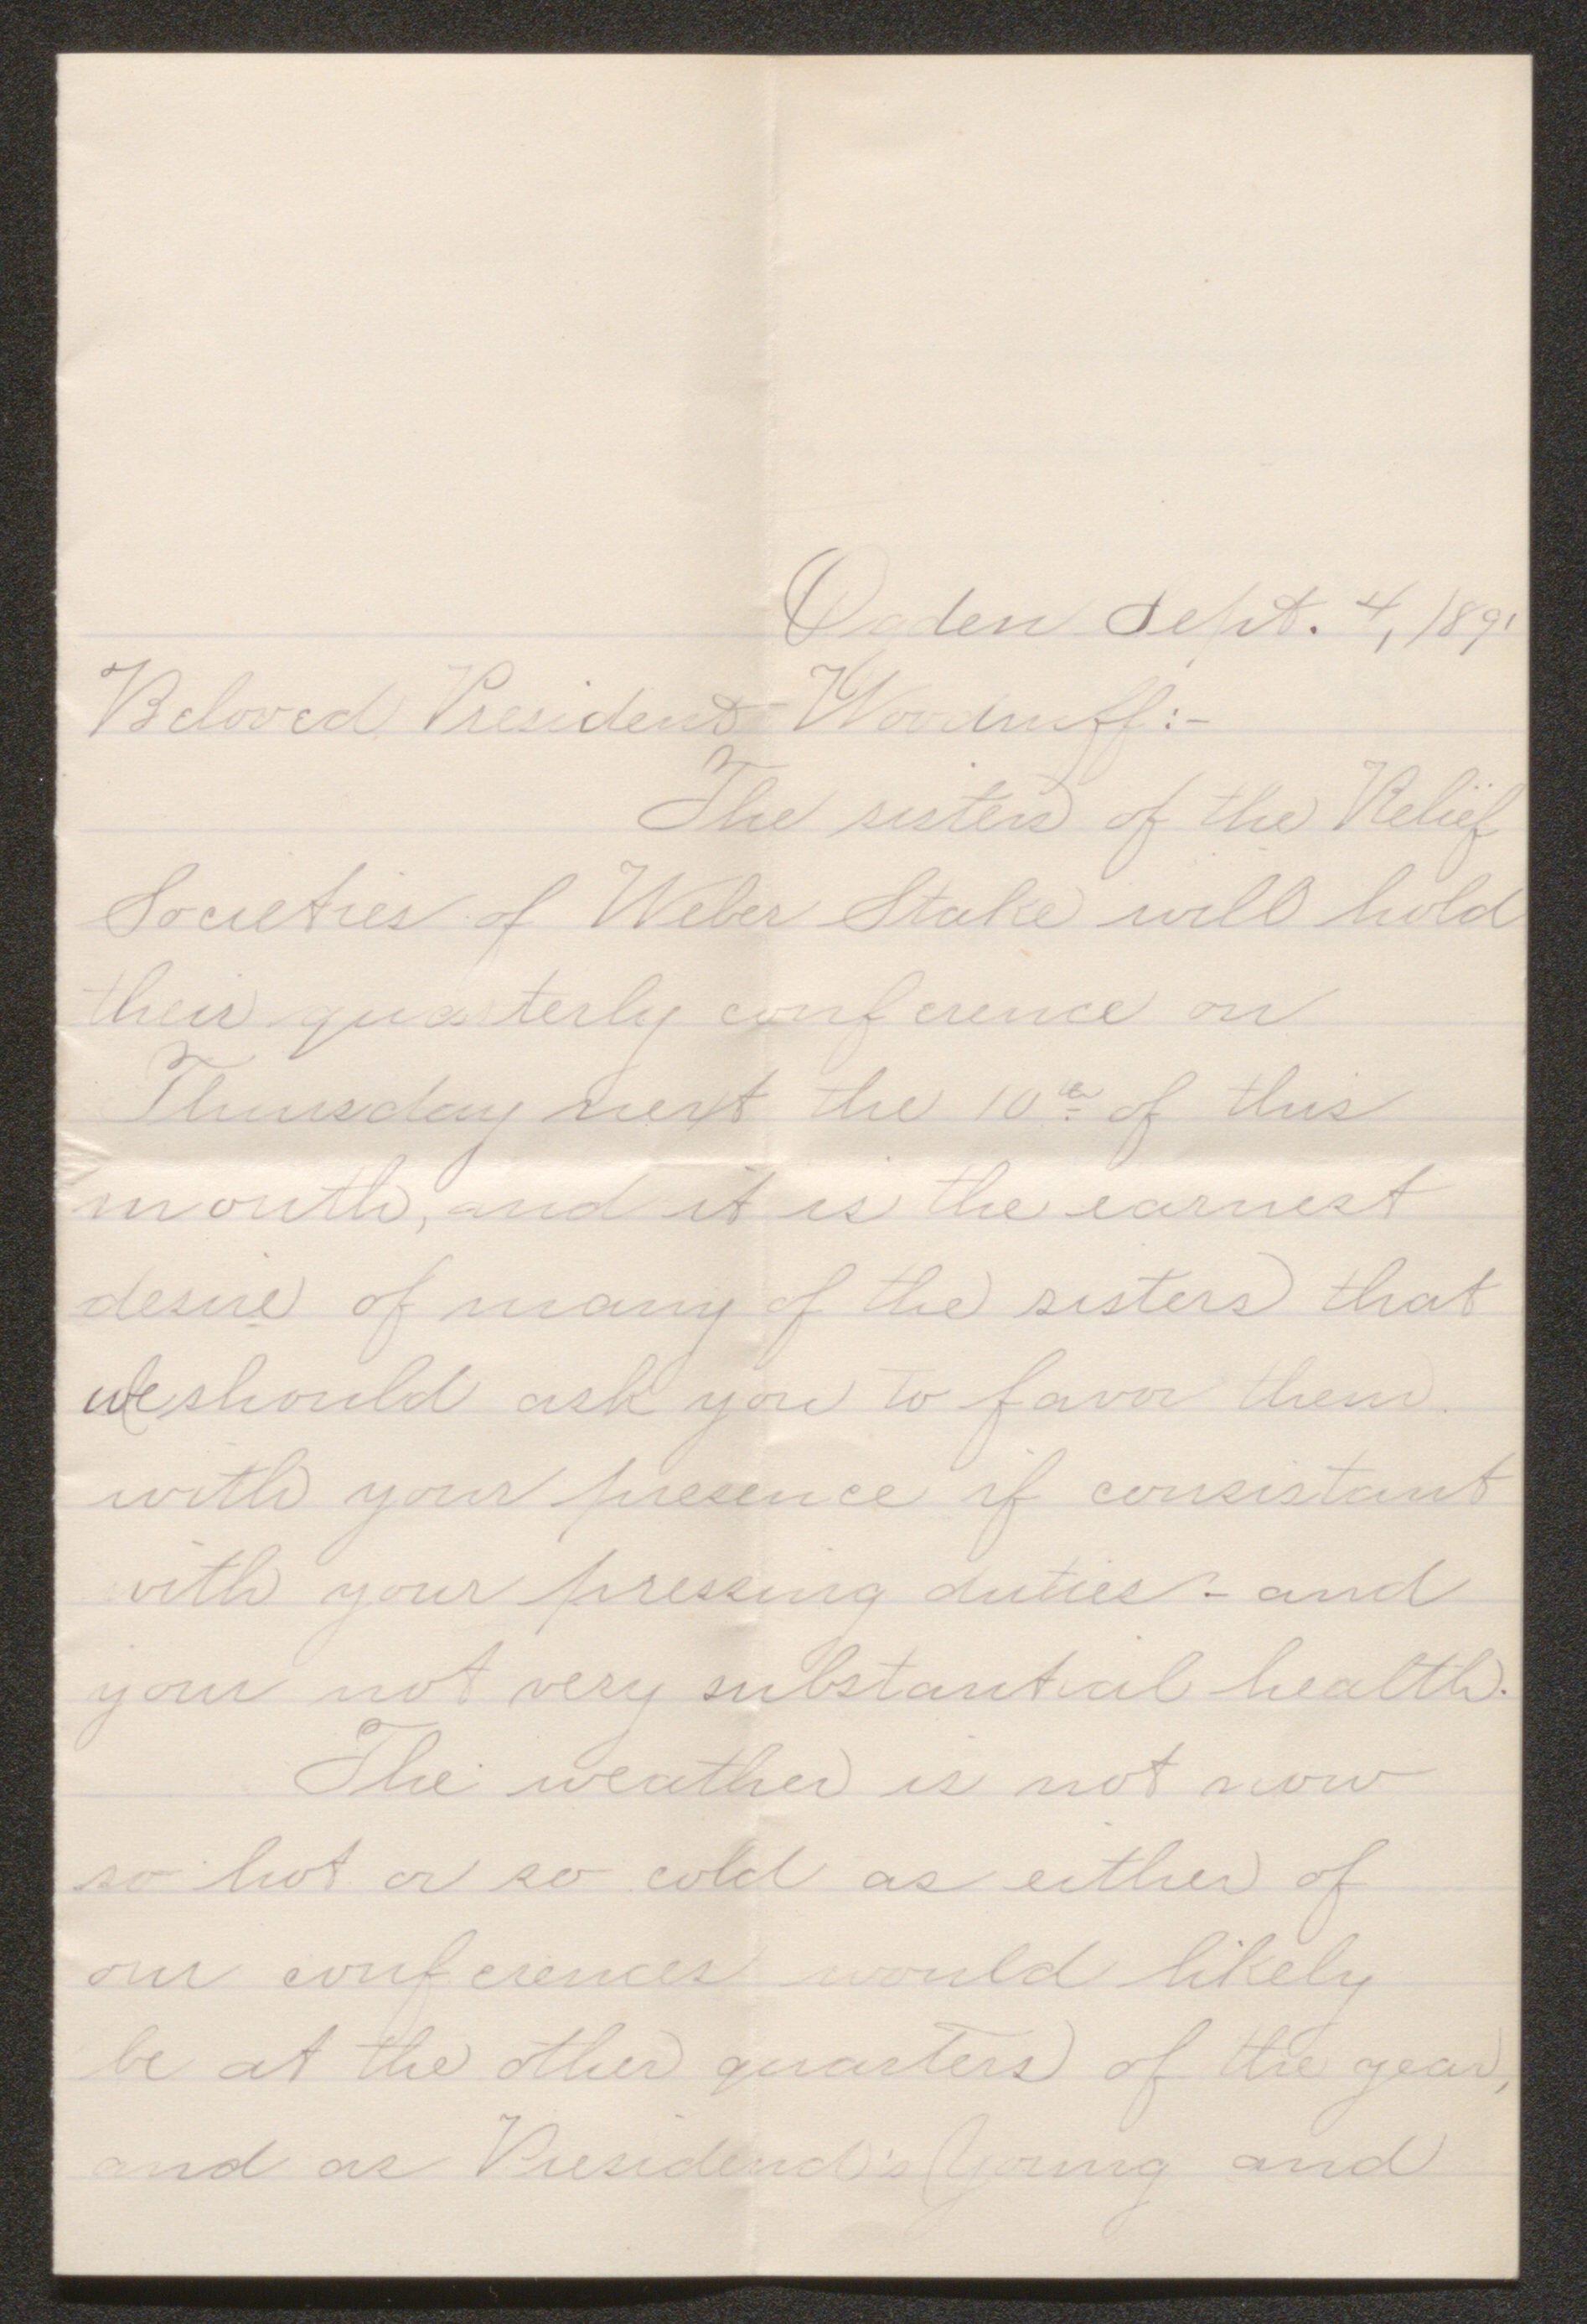 Ogden Sept. 4, 1891
Beloved President Woodruff:-
The sisters of the Relief
Societies of Weber Stake will hold
their quarterly conference on
Thursday next the 10th of this
month, and it is the earnest
desire of many of the sisters that
we should ask you to favor them
with your presence if consistant
with your pressing duties - and
your not very substantial health.
The weather is not now
so hot or so cold as either of
our conferences would likely
be at the other quarters of the year,
and as Presidend's Young and